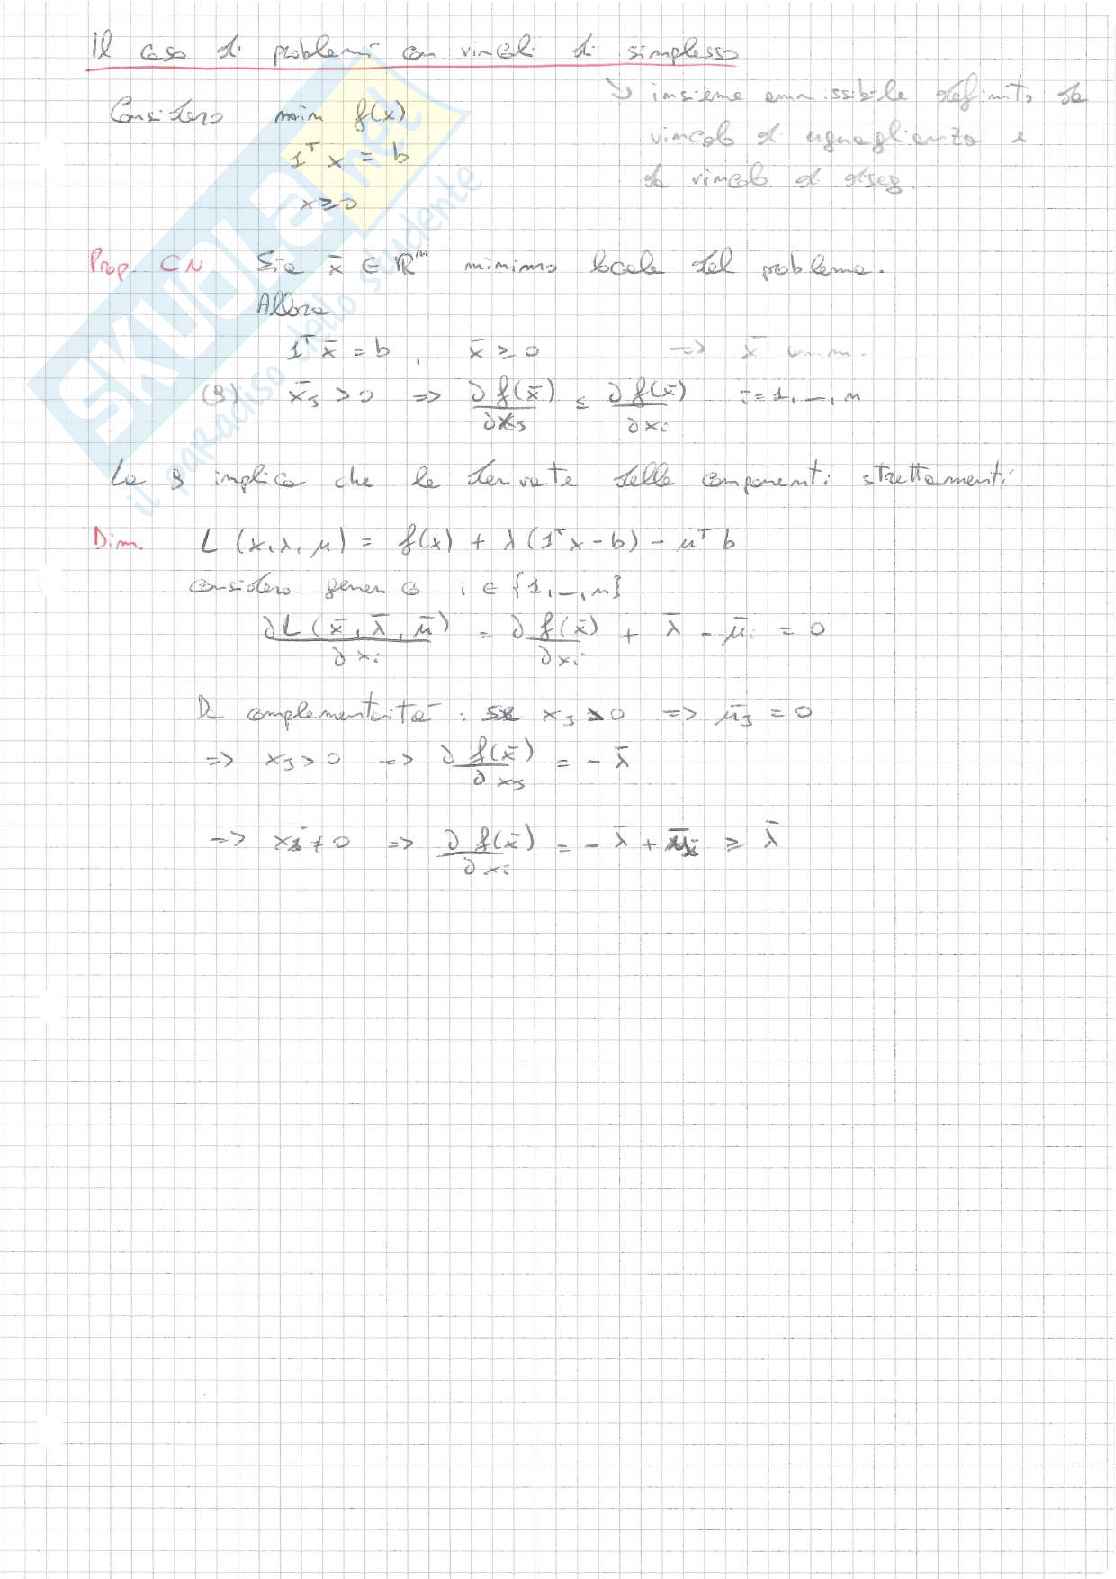 Il caso di problemi con vincoli di simplesso
Considero min f(x)
1ᵀ x = b
x ≥ 0
↳ insieme ammissibile definito da
vincolo di uguaglianza e
da vincolo di diseg.
Prop. CN Sia x̄ ∈ ℝⁿ minimo locale del problema.
Allora
1ᵀ x̄ = b , x̄ ≥ 0 => x̄ amm.
(9) x̄ⱼ > 0 => ∂f(x̄)/∂xⱼ ≤ ∂f(x̄)/∂xᵢ i=1,...,n
La 9 implica che le derivate delle componenti strettamenti
Dim. L (x,λ,μ) = f(x) + λ(1ᵀx - b) - μᵀ b
Considero generico i ∈ {1,...,n}
∂L(x̄,λ̄,μ̄)/∂xᵢ = ∂f(x̄)/∂xᵢ + λ̄ - μ̄ᵢ = 0
Da complementarità : se xⱼ > 0 => μ̄ⱼ = 0
=> xⱼ > 0 => ∂f(x̄)/∂xⱼ = - λ̄
=> xᵢ ≠ 0 => ∂f(x̄)/∂xᵢ = - λ̄ + μ̄ᵢ ≥ λ̄
SKUOLA.net
il paradiso dello studente